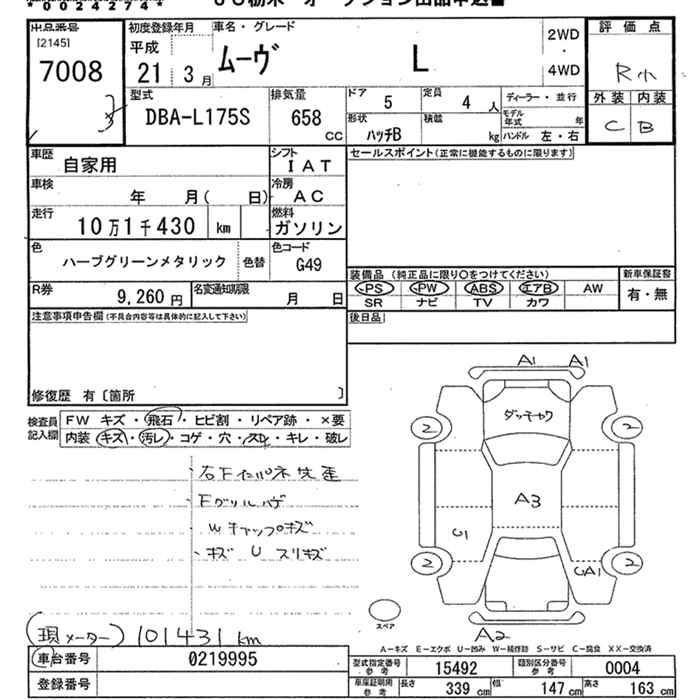 *0024274*
出品番号
[2145]
7008
初度登録年月
平成
21 3 月
車名・グレード
ムーヴ L
2WD
・
4WD
評価点
R小
型式
DBA-L175S
排気量
658
CC
ドア
5
定員
4 人
ディーラー・並行
形状
ハッチB
積載
kg
モデル
年式 年
ハンドル 左・右
外装 内装
C B
車歴
自家用
シフト
IAT
車検
年 月( 日)
冷房
AC
走行
10万1千430 km
燃料
ガソリン
色
ハーブグリーンメタリック
色替
色コード
G49
R券
9,260 円
名変通知期限
月 日
セールスポイント(正常に機能するものに限ります)
装備品 (純正品に限り○をつけてください)
新車保証書
PS PW ABS エアB AW
有・無
SR ナビ TV カワ
後日品
注意事項申告欄(不具合内容等は具体的に記入して下さい)
修復歴 有〔箇所 〕
検査員
記入欄
FW キズ・飛石・ヒビ割・リペア跡・×要
内装 キズ・汚レ・コゲ・穴・スレ・キレ・破レ
Fグリルハゲ
Wキャップキズ
キズ U スリキズ
(現メーター) 101431 km
車台番号
0219995
登録番号
A1 A1
2 2
A3
2 2
A2
スペア
A-キズ E-エクボ U-凹み W-補修跡 S-サビ C-腐食 XX-交換済
型式指定番号
参考
15492
類別区分番号
参考
0004
車庫証明用
参考
長さ
339 cm
幅
147 cm
高さ
163 cm